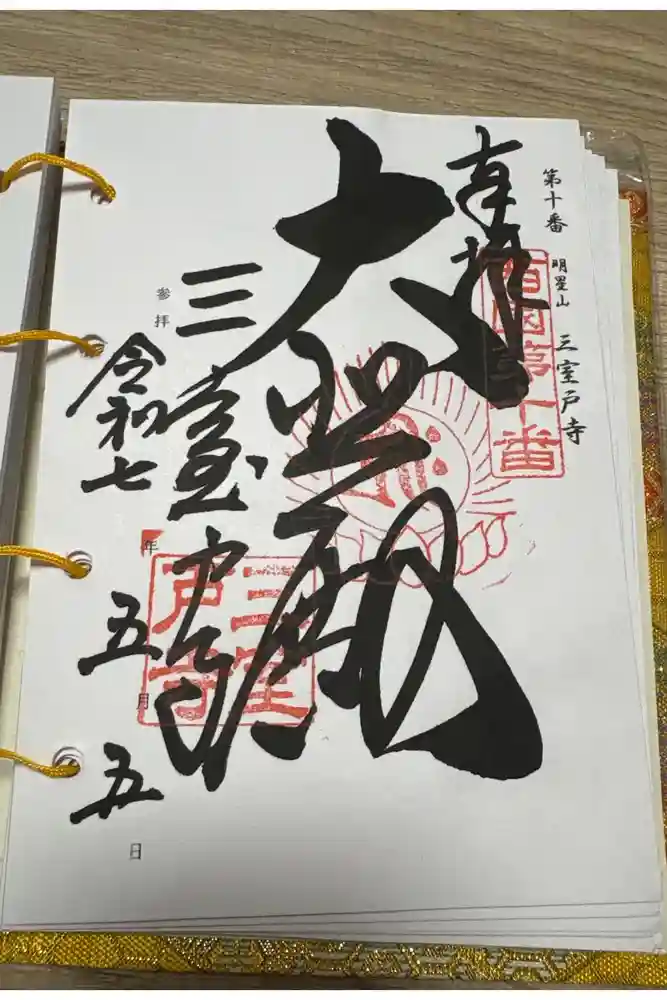 第十番 明星山 三室戸寺
奉拝
西国第十番
大悲
三室戸寺
三室戸寺
参拝
令和七年五月五日